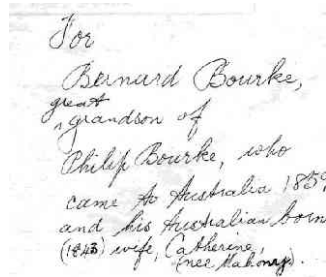 For
Bernard Bourke,
great
grandson of
Philip Bourke, who
came to Australia 185
and his Australian born
(1843) wife, Catherine,
(née Mahony).